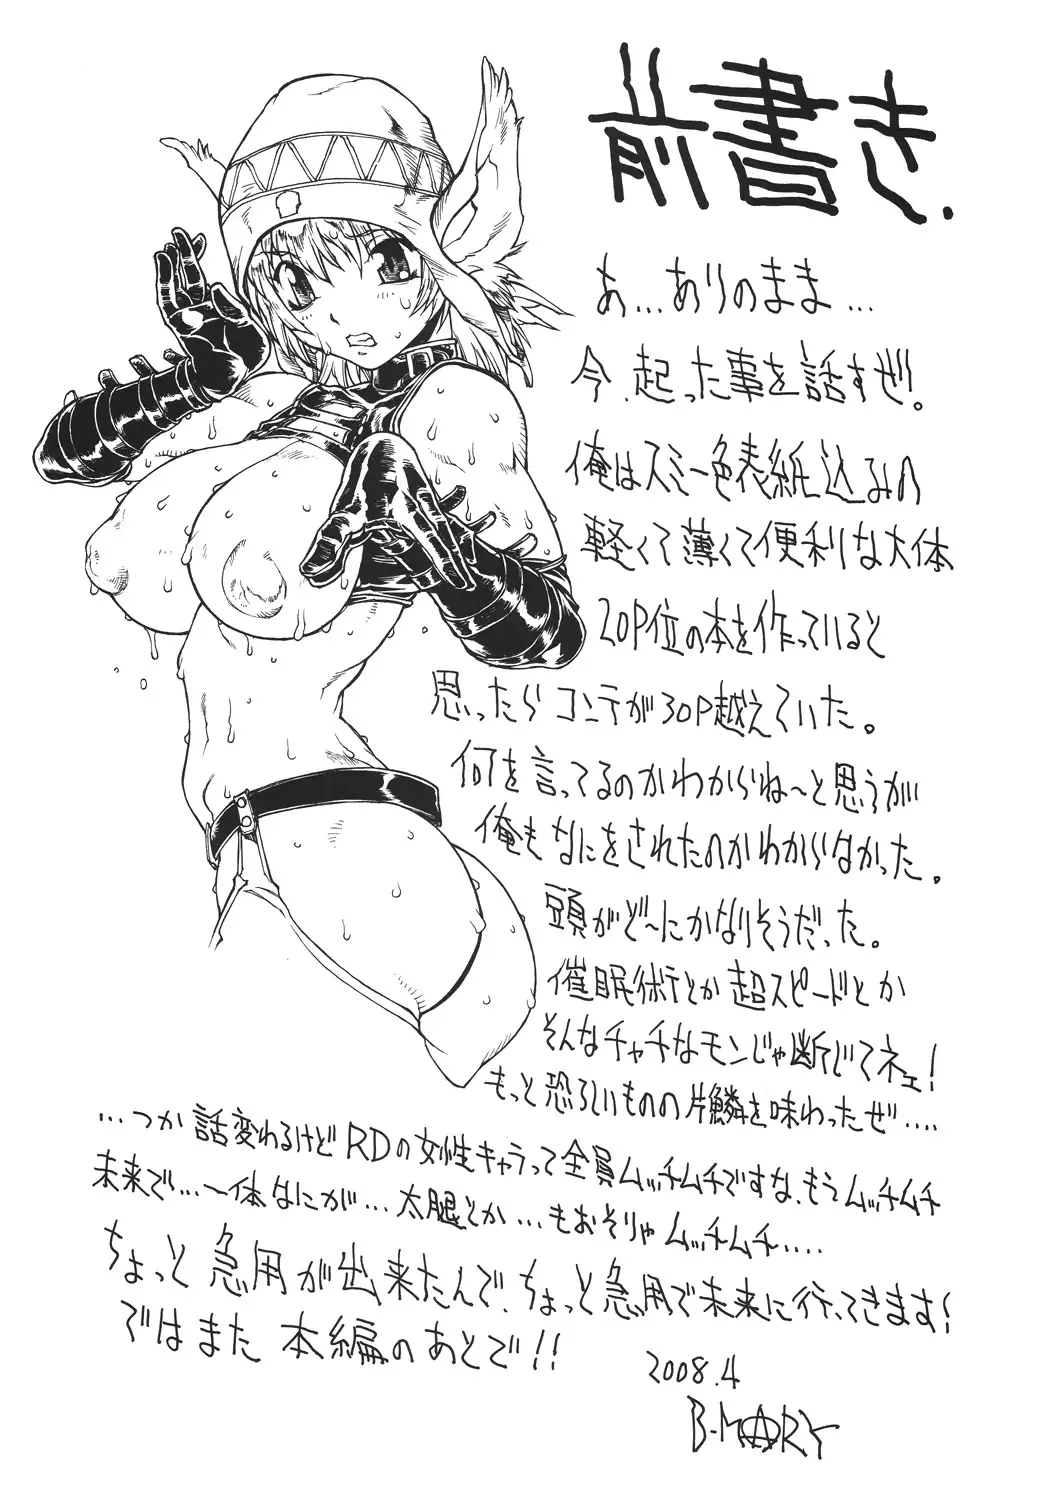 前書き.
あ…ありのまま…
今、起った事を話すぜ!
俺はスミ一色表紙込みの
軽くて薄くて便利な大体
20P位の本を作っていると
思ったらコンテが30P越えていた。
何を言ってるのかわからね〜と思うが
俺もなにをされたのかわからなかった。
頭がど〜にかなりそうだった。
催眠術とか超スピードとか
そんなチャチなモンじゃ断じてネェ!
もっと恐ろしいものの片鱗を味わったぜ….
…つか話変わるけどRDの女性キャラって全員ムッチムチですな、もうムッチムチ
未来で…一体なにが…太腿とか…もおそりゃムッチムチ….
ちょっと急用が出来たんで、ちょっと急用で未来に行ってきます!
ではまた本編のあとで!!
2008.4
B-MARY